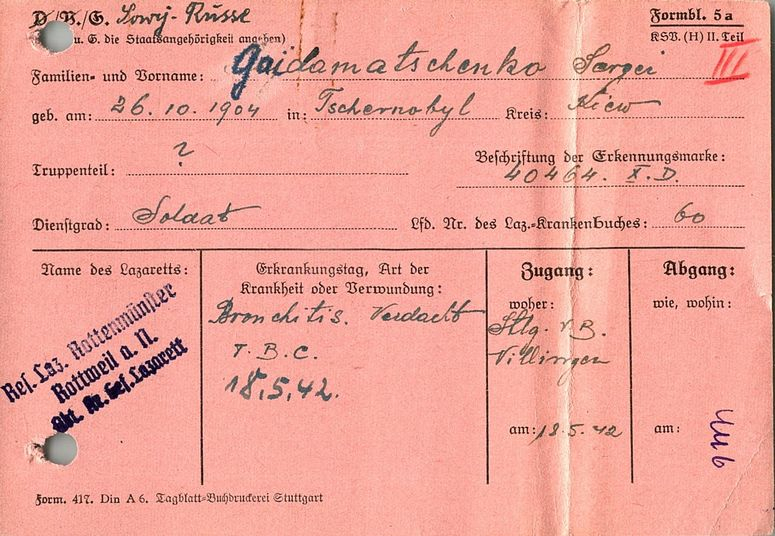 D/V./G. Sowj-Russe
Formbl. 5a
u. G. die Staatsangehörigkeit angeben)
KSV. (H) II. Teil
III
Familien- und Vorname: Gaidamatschenko Sergei
geb. am: 26.10.1904 in: Tschernobyl Kreis: Kiew
Truppenteil: ?
Beschriftung der Erkennungsmarke:
40464. X.D.
Dienstgrad: Soldat
Lfd. Nr. des Laz.-Krankenbuches: 60
Name des Lazaretts:
Res. Laz. Rottenmünster
Rottweil a. N.
Abt. Kr. Gef. Lazarett
Erkrankungstag, Art der
Krankheit oder Verwundung:
Bronchitis. Verdacht
T.B.C.
18.5.42.
Zugang:
woher:
Stlg. V.B.
Villingen
am: 18.5.42
Abgang:
wie, wohin:
am:
Form. 417. Din A 6. Tagblatt-Buchdruckerei Stuttgart